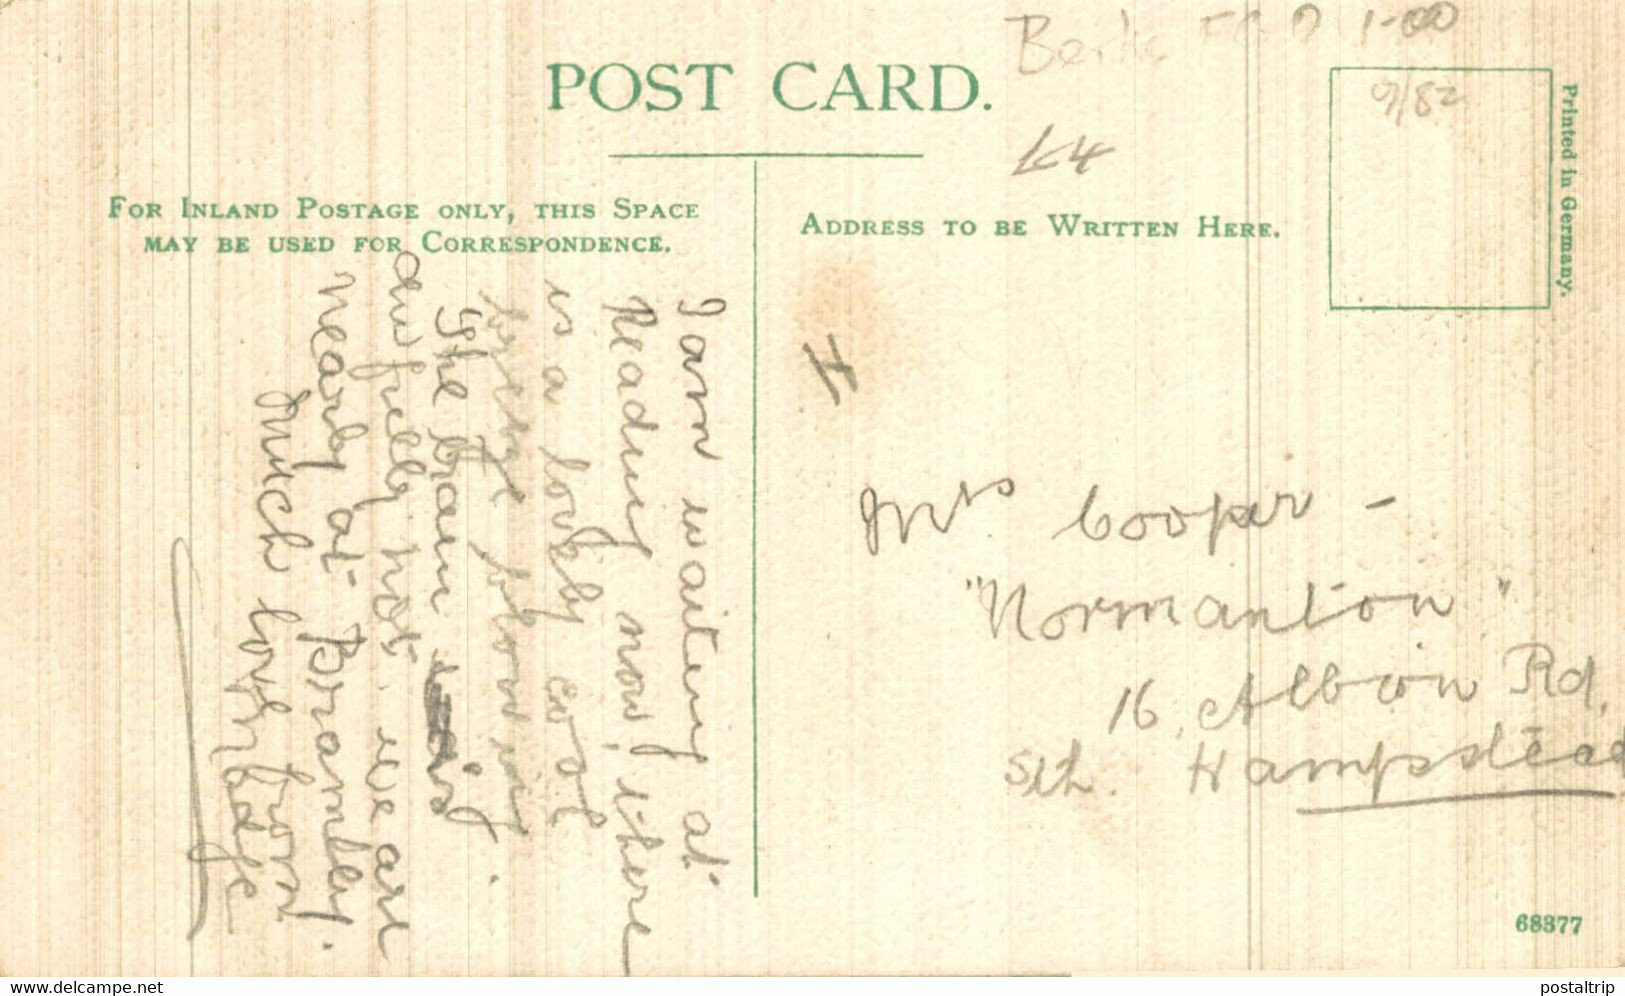 Berks
1-00
POST CARD.
9/82
Printed in Germany.
£4
FOR INLAND POSTAGE ONLY, THIS SPACE
MAY BE USED FOR CORRESPONDENCE.
ADDRESS TO BE WRITTEN HERE.
I am waiting at
Reading now, & there
is a lovely cool
breeze blowing.
The train is
awfully hot. we are
nearly at Bramley.
Much love from
Madge
Mrs Cooper -
"Normanton"
16, Albion Rd,
Sth. Hampstead
68377
www.delcampe.net
postaltrip